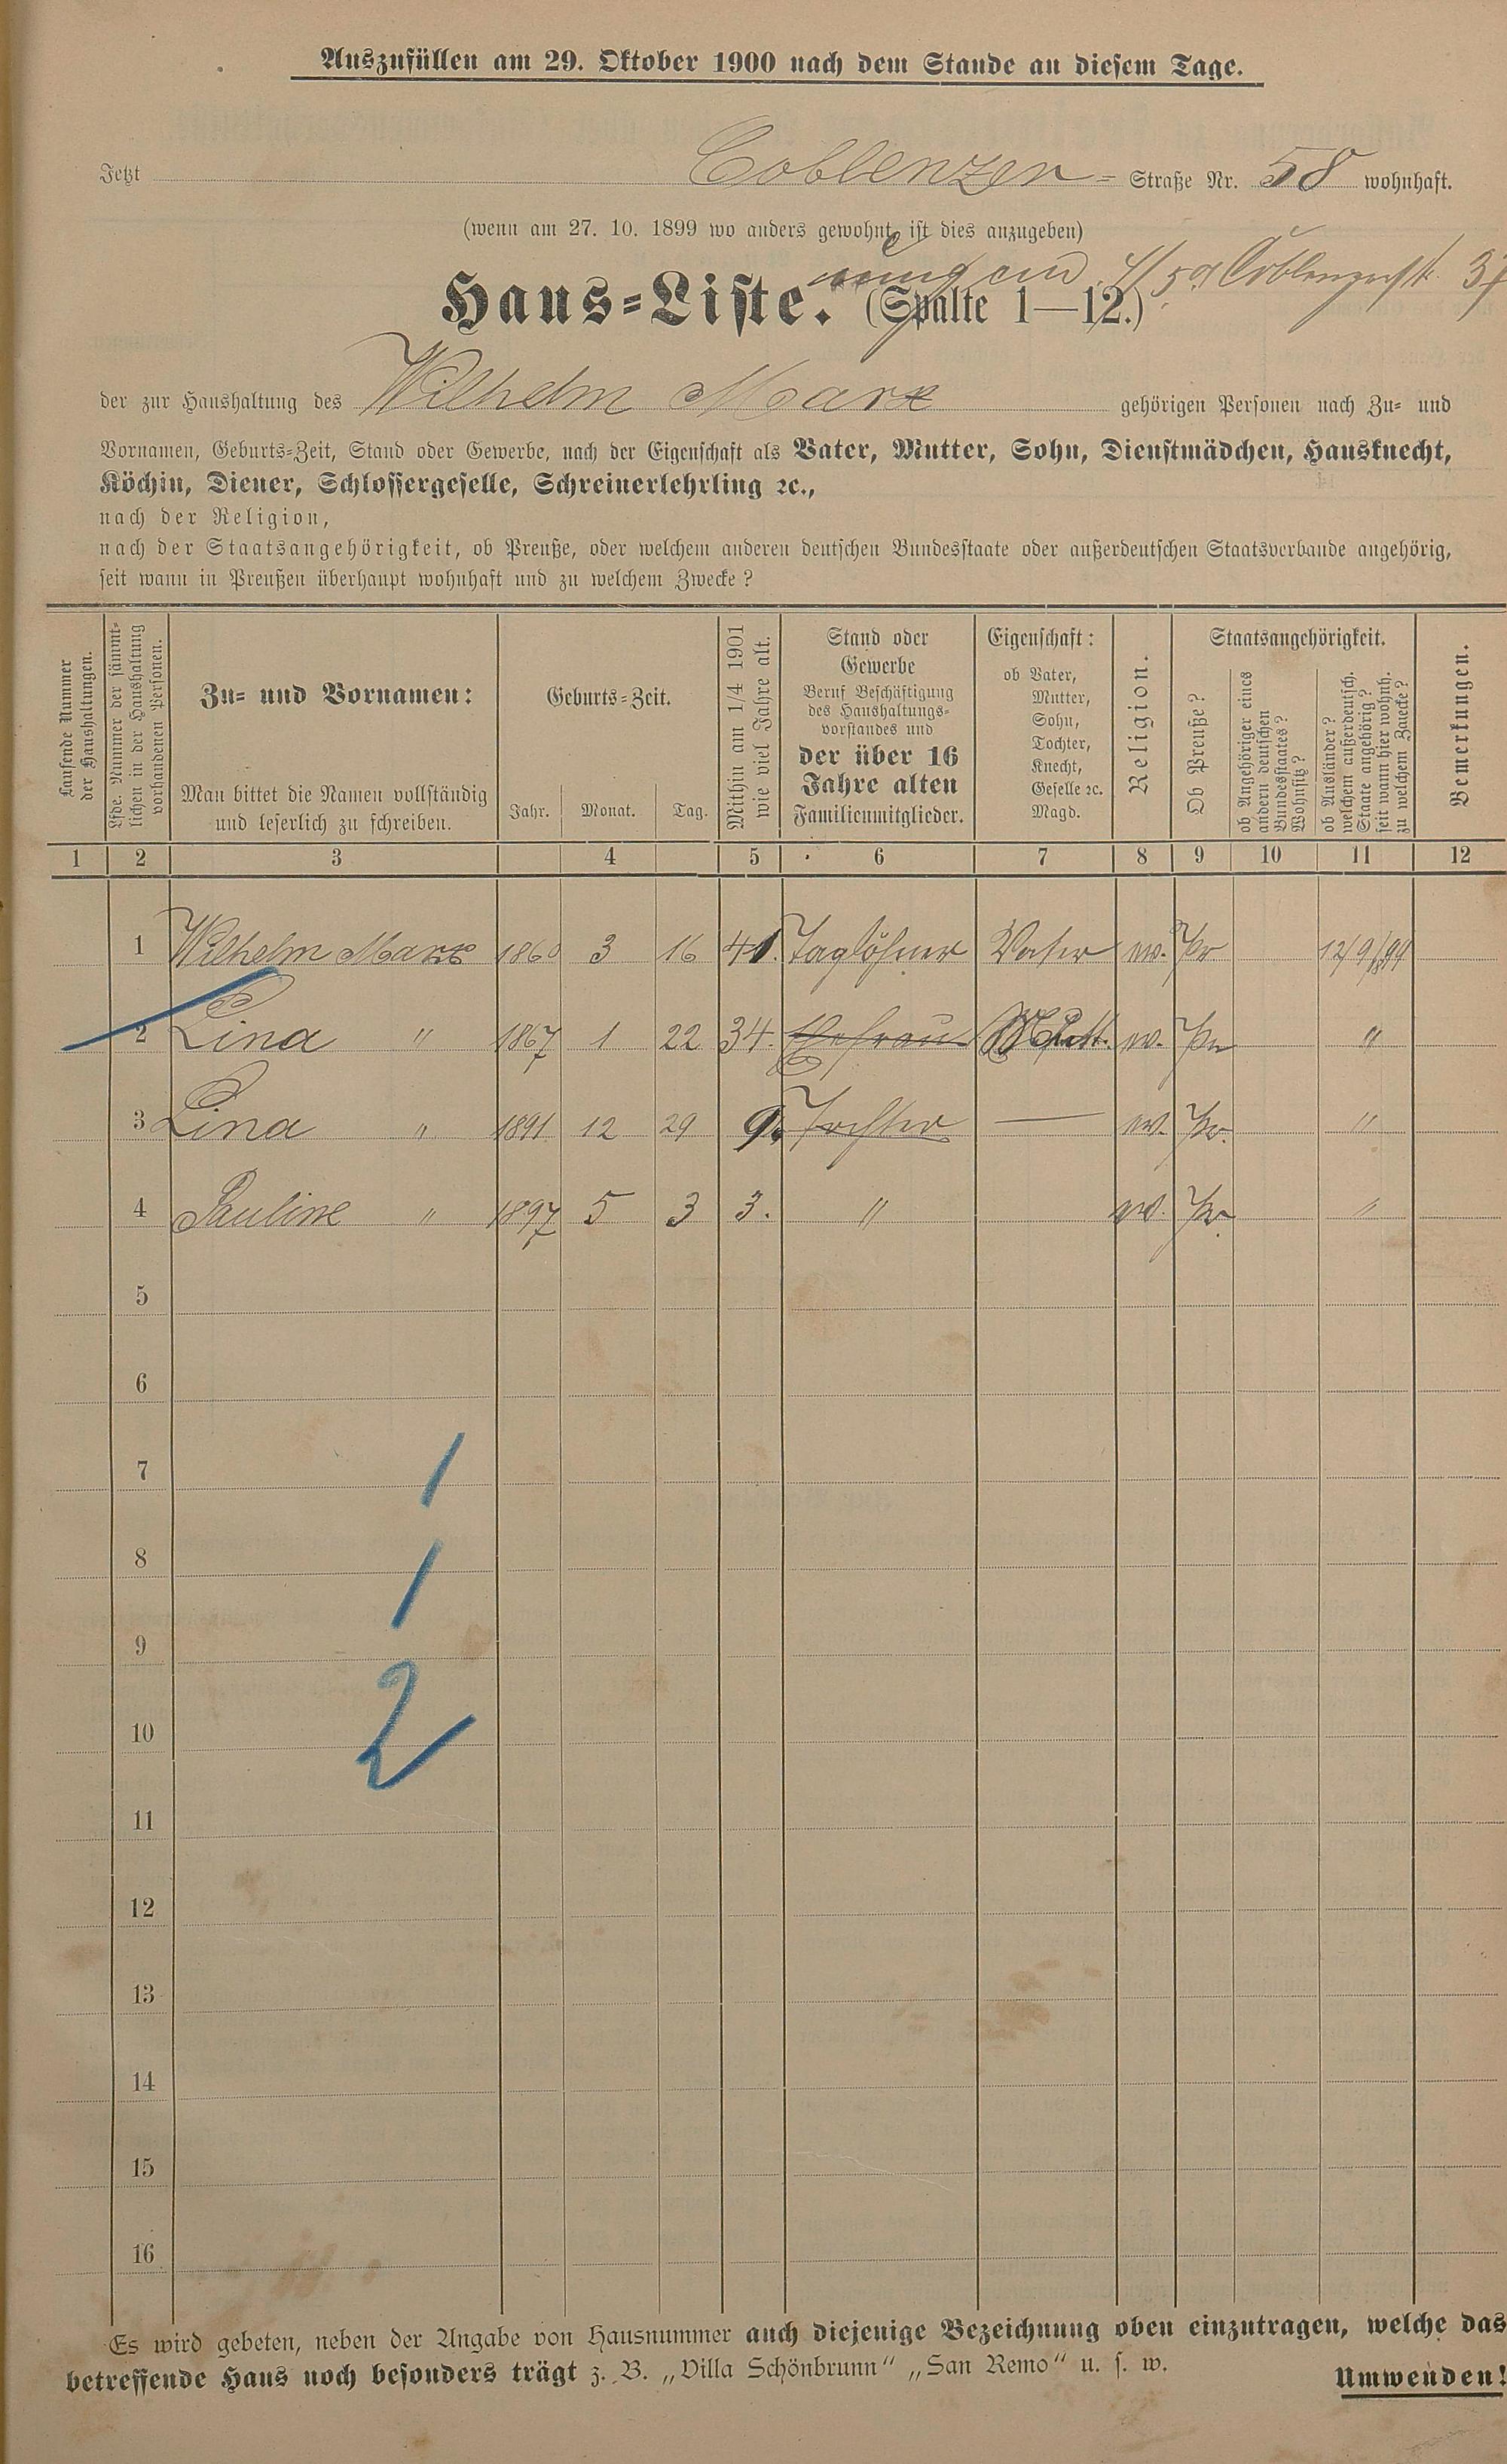 Auszufüllen am 29. Oktober 1900 nach dem Stande an diesem Tage.
Jetzt Coblenzer- Straße Nr. 58 wohnhaft.
(wenn am 27. 10. 1899 wo anders gewohnt, ist dies anzugeben)
Coblenzerstr. 37
Haus-Liste. (Spalte 1—12.)
der zur Haushaltung des Wilhelm Marx gehörigen Personen nach Zu- und
Vornamen, Geburts-Zeit, Stand oder Gewerbe, nach der Eigenschaft als Vater, Mutter, Sohn, Dienstmädchen, Hausknecht,
Köchin, Diener, Schlossergeselle, Schreinerlehrling ꝛc.,
nach der Religion,
nach der Staatsangehörigkeit, ob Preuße, oder welchem anderen deutschen Bundesstaate oder außerdeutschen Staatsverbande angehörig,
seit wann in Preußen überhaupt wohnhaft und zu welchem Zwecke?
Laufende Nummer
der Haushaltungen.
Lfde. Nummer der sämmt-
lichen in der Haushaltung
vorhandenen Personen.
Zu- und Vornamen:
Man bittet die Namen vollständig
und leserlich zu schreiben.
Geburts-Zeit.
Jahr. Monat. Tag.
Mithin am 1/4 1901
wie viel Jahre alt.
Stand oder
Gewerbe
Beruf Beschäftigung
des Haushaltungs-
vorstandes und
der über 16
Jahre alten
Familienmitglieder.
Eigenschaft:
ob Vater,
Mutter,
Sohn,
Tochter,
Knecht,
Geselle ꝛc.
Magd.
Religion.
Staatsangehörigkeit.
Ob Preuße?
ob Angehöriger eines
andern deutschen
Bundesstaates?
Wohnsitz?
ob Ausländer?
welchem außerdeutsch.
Staate angehörig?
seit wann hier wohnh.
zu welchem Zwecke?
Bemerkungen.
1 2 3 4 5 6 7 8 9 10 11 12
1 Wilhelm Marx 1860 3 16 41. Taglöhner Vater ev. Pr 12/9/99
2 Lina " 1867 1 22 34. Ehefrau Mutt. ev. Pr "
3 Lina " 1891 12 29 9. Tochter — ev. Pr. "
4 Pauline " 1897 5 3 3. " ev. Pr. "
5
6
7 1
8 1
9
10 2
11
12
13
14
15
16
Es wird gebeten, neben der Angabe von Hausnummer auch diejenige Bezeichnung oben einzutragen, welche das
betreffende Haus noch besonders trägt z. B. „Villa Schönbrunn“ „San Remo“ u. s. w.
Umwenden!